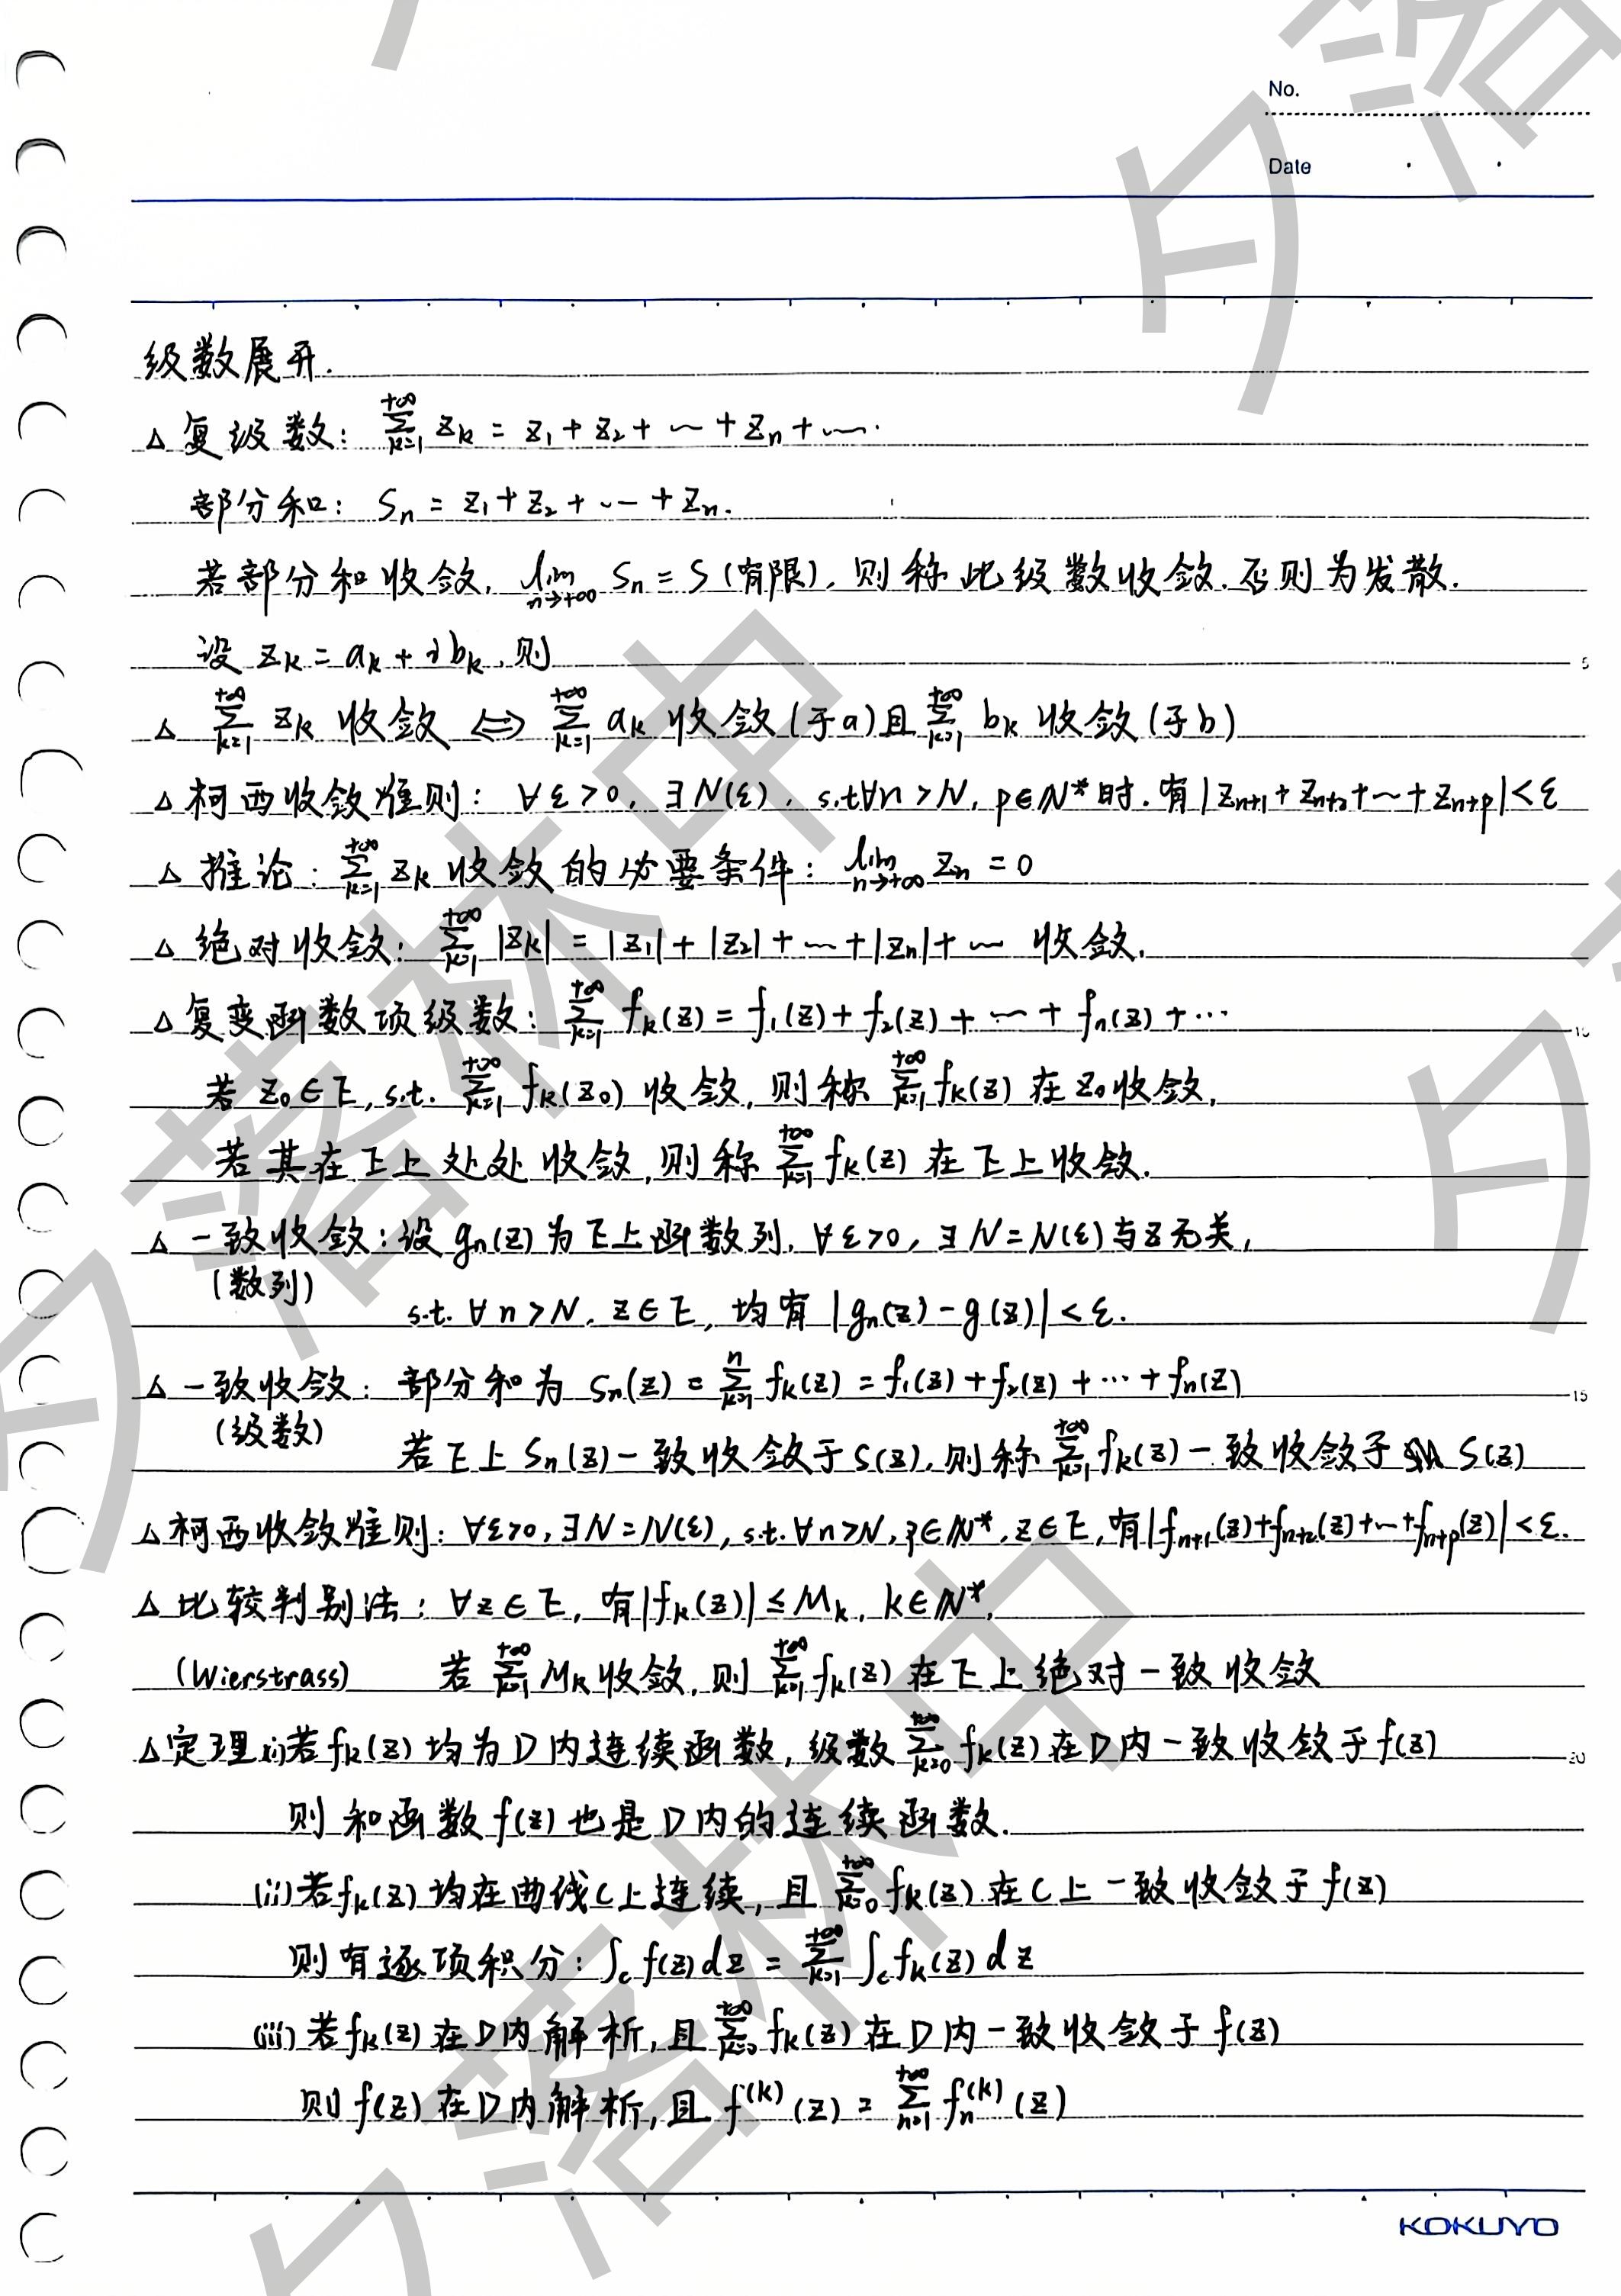 No.
Date
级数展开.
△ 复级数: $\sum_{k=1}^{+\infty} z_k = z_1 + z_2 + \cdots + z_n + \cdots$.
部分和: $S_n = z_1 + z_2 + \cdots + z_n$.
若部分和收敛, $\lim_{n\to+\infty} S_n = S$ (有限), 则称此级数收敛. 否则为发散.
设 $z_k = a_k + ib_k$, 则
5
△ $\sum_{k=1}^{+\infty} z_k$ 收敛 ⟺ $\sum_{k=1}^{+\infty} a_k$ 收敛 (于a) 且 $\sum_{k=1}^{+\infty} b_k$ 收敛 (于b)
△ 柯西收敛准则: ∀ε>0, ∃N(ε), s.t ∀n>N, p∈N* 时. 有 $|z_{n+1} + z_{n+2} + \cdots + z_{n+p}| < ε$
△ 推论: $\sum_{k=1}^{+\infty} z_k$ 收敛的必要条件: $\lim_{n\to+\infty} z_n = 0$
△ 绝对收敛: $\sum_{k=1}^{+\infty} |z_k| = |z_1| + |z_2| + \cdots + |z_n| + \cdots$ 收敛.
△ 复变函数项级数: $\sum_{k=1}^{+\infty} f_k(z) = f_1(z) + f_2(z) + \cdots + f_n(z) + \cdots$
10
若 $z_0 ∈ E$, s.t. $\sum_{k=1}^{+\infty} f_k(z_0)$ 收敛, 则称 $\sum_{k=1}^{+\infty} f_k(z)$ 在 $z_0$ 收敛,
若其在E上处处收敛, 则称 $\sum_{k=1}^{+\infty} f_k(z)$ 在E上收敛.
△ 一致收敛: 设 $g_n(z)$ 为E上函数列. ∀ε>0, ∃N=N(ε)与z无关,
(数列)
s.t. ∀n>N, z∈E, 均有 $|g_n(z) - g(z)| < ε$.
△ 一致收敛: 部分和为 $S_n(z) = \sum_{k=1}^{n} f_k(z) = f_1(z) + f_2(z) + \cdots + f_n(z)$
15
(级数)
若E上 $S_n(z)$ 一致收敛于 $S(z)$, 则称 $\sum_{k=1}^{+\infty} f_k(z)$ 一致收敛于 $S(z)$
△ 柯西收敛准则: ∀ε>0, ∃N=N(ε), s.t. ∀n>N, p∈N*, z∈E, 有 $|f_{n+1}(z) + f_{n+2}(z) + \cdots + f_{n+p}(z)| < ε$.
△ 比较判别法: ∀z∈E, 有 $|f_k(z)| ≤ M_k$, k∈N*,
(Wierstrass) 若 $\sum_{k=1}^{+\infty} M_k$ 收敛, 则 $\sum_{k=1}^{+\infty} f_k(z)$ 在E上绝对一致收敛
△ 定理 (i) 若 $f_k(z)$ 均为D内连续函数, 级数 $\sum_{k=0}^{+\infty} f_k(z)$ 在D内一致收敛于 $f(z)$
20
则和函数 $f(z)$ 也是D内的连续函数.
(ii) 若 $f_k(z)$ 均在曲线C上连续, 且 $\sum_{k=0}^{+\infty} f_k(z)$ 在C上一致收敛于 $f(z)$
则有逐项积分: $\int_c f(z)dz = \sum_{k=1}^{+\infty} \int_c f_k(z)dz$
(iii) 若 $f_k(z)$ 在D内解析, 且 $\sum_{k=0}^{+\infty} f_k(z)$ 在D内一致收敛于 $f(z)$
则 $f(z)$ 在D内解析, 且 $f^{(k)}(z) = \sum_{n=1}^{+\infty} f_n^{(k)}(z)$
KOKUYO
夕落林中
夕落林中